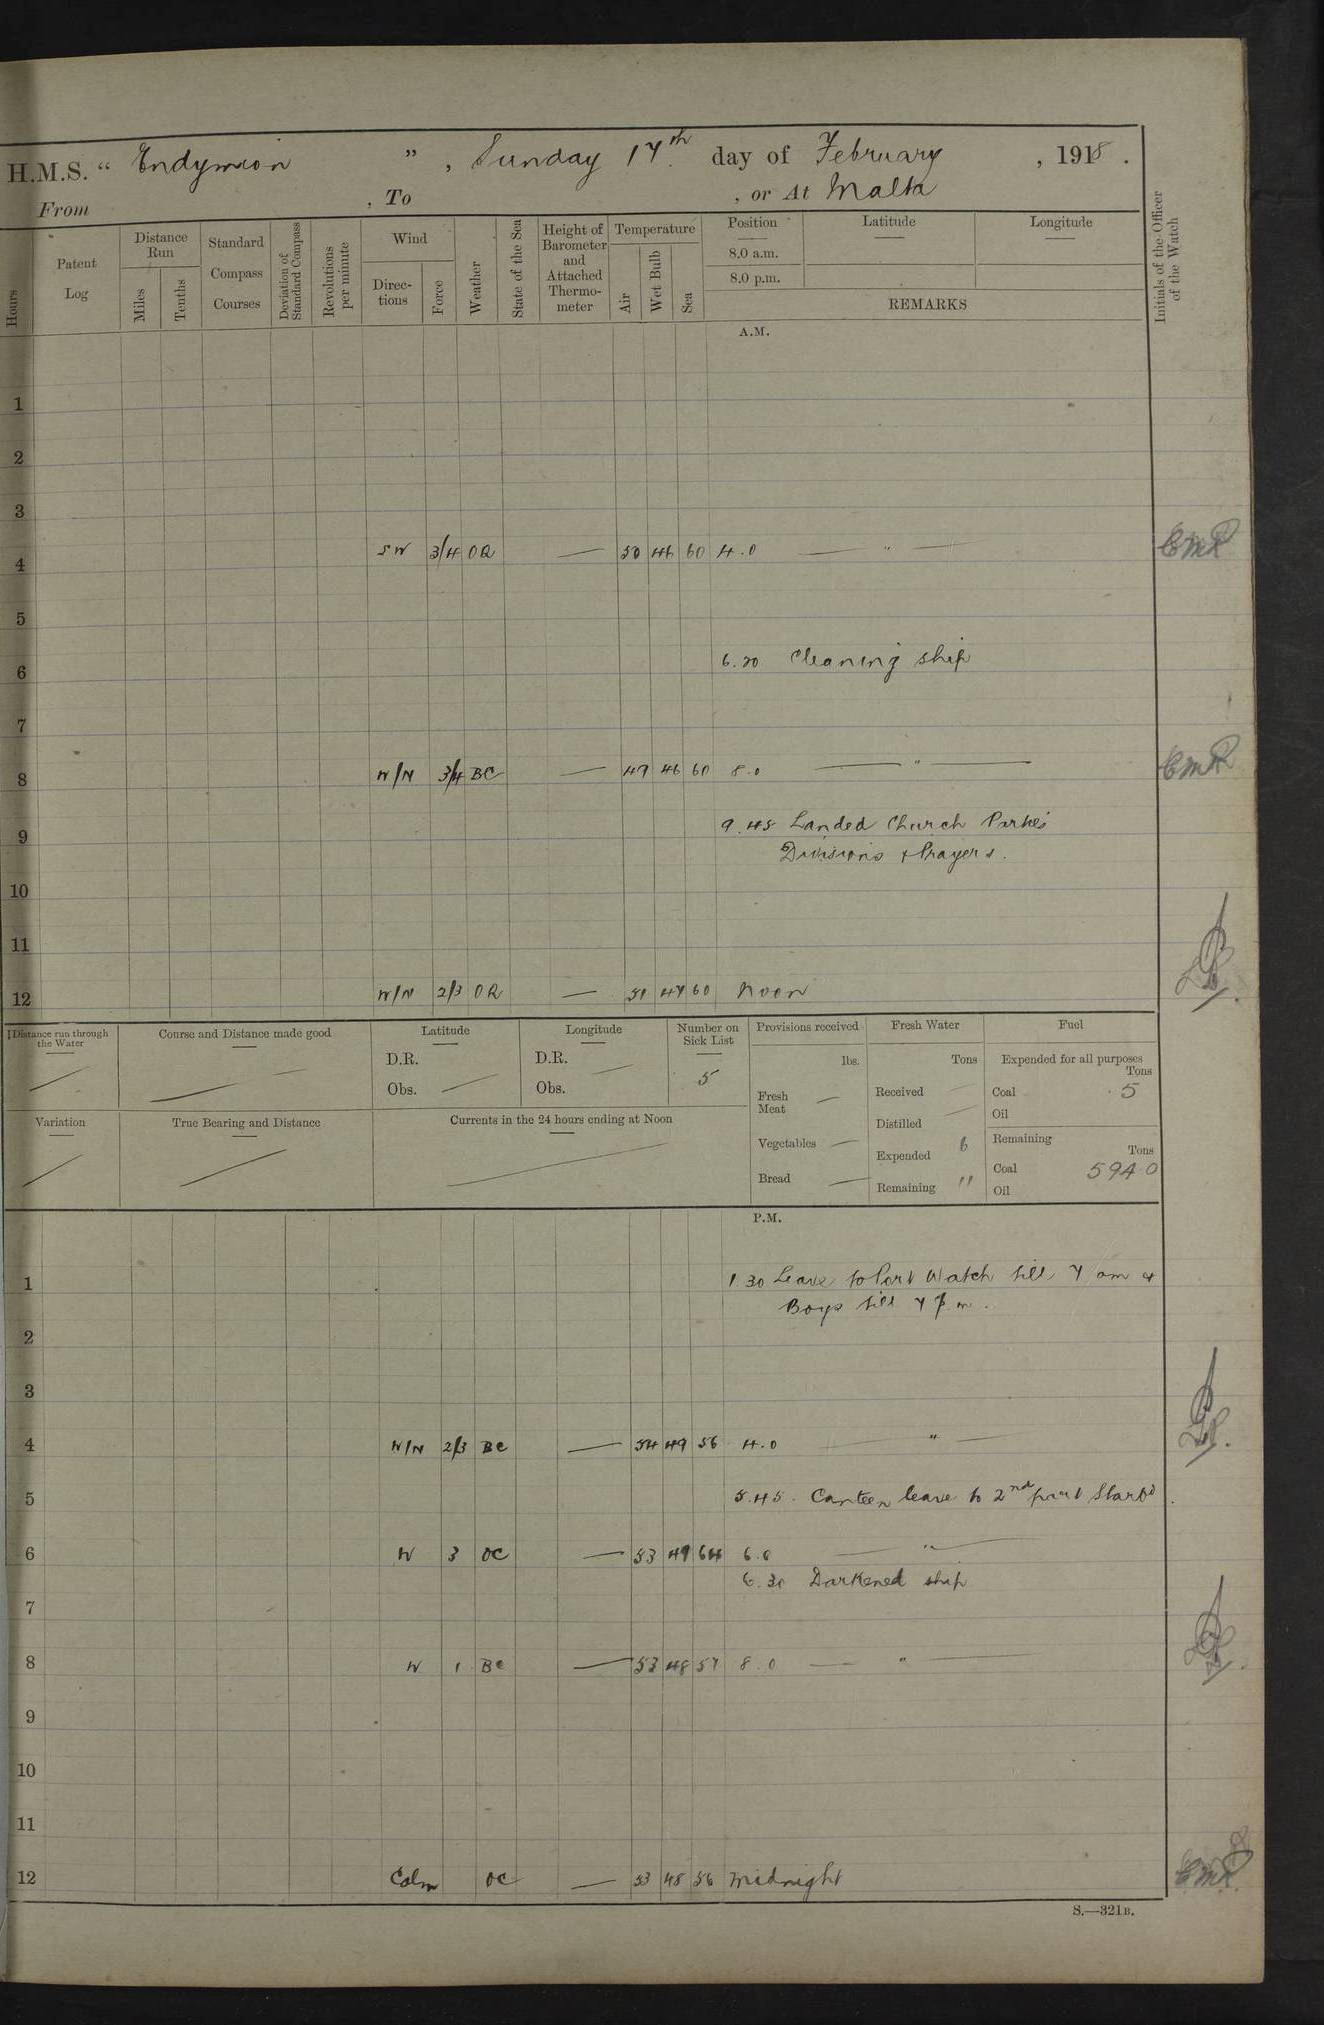 H.M.S. “ Endymion ” , Sunday 17th. day of February , 1918 .
From , To , or At Malta
Hours Patent Log Distance Run Miles Tenths Standard Compass Courses Deviation of Standard Compass Revolutions per minute Wind Directions Force Weather State of the Sea Height of Barometer and Attached Thermometer Temperature Air Wet Bulb Sea Position 8.0 a.m. 8.0 p.m. Latitude Longitude REMARKS Initials of the Officer of the Watch
A.M.
1
2
3
4 SW 3/4 OR — 50 46 60 4.0 — " — EMR
5
6 6.20 Cleaning ship
7
8 W/N 3/4 BC — 47 46 60 8.0 — " — EMR
9 9.45 Landed Church Parties
Divisions & Prayers.
10
11
12 W/N 2/3 OR — 51 47 60 Noon
Distance run through the Water Course and Distance made good Latitude D.R. Obs. Longitude D.R. Obs. Number on Sick List 5
Variation True Bearing and Distance Currents in the 24 hours ending at Noon
Provisions received lbs. Fresh Meat — Vegetables — Bread —
Fresh Water Tons Received — Distilled — Expended 6 Remaining "
Fuel Expended for all purposes Tons Coal 5 Oil Remaining Tons Coal 5940 Oil
P.M.
1 1.30 Leave to Port Watch till 7 am &
Boys till 7 p.m.
2
3
4 W/N 2/3 BC — 54 49 56 4.0 — " —
5 5.45. Canteen leave to 2nd part Starbd
6 W 3 OC — 53 49 64 6.0 — " —
6.30 Darkened ship
7
8 W 1 BC — 53 48 57 8.0 — " —
9
10
11
12 Calm OC — 53 48 56 Midnight EMR
S.—321B.